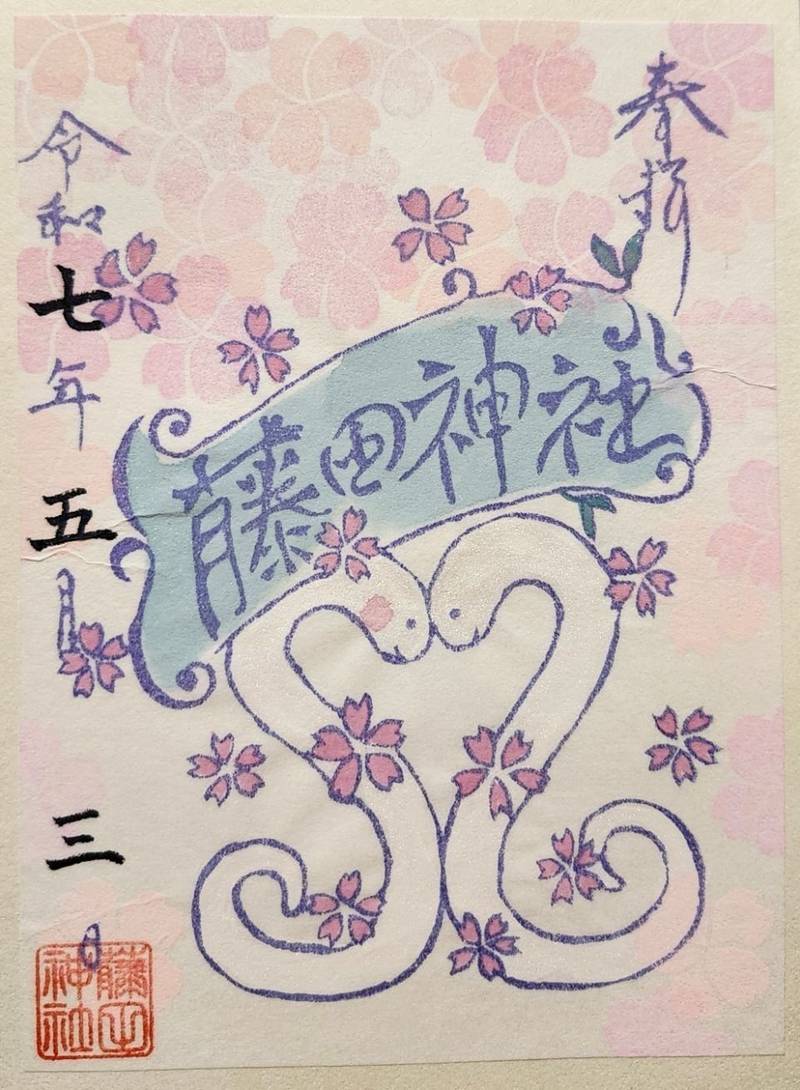 奉拝
藤田神社
令和七年五月三日
藤田
神社